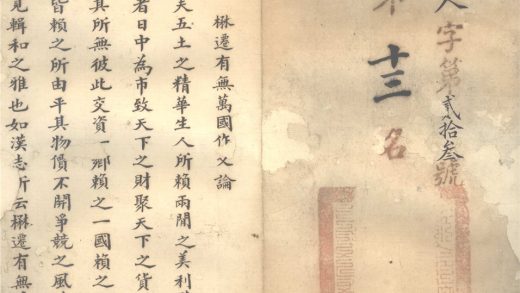 字第貳拾叁號
十三名
楙遷有無萬國作乂論
夫五土之精華生人所賴兩閒之美利
者日中為市致天下之財聚天下之貨
其所無彼此交資一鄉賴之一國賴之
皆賴之所由平其物價不開爭競之風
見輯和之雅也如漢志所云楙遷有無